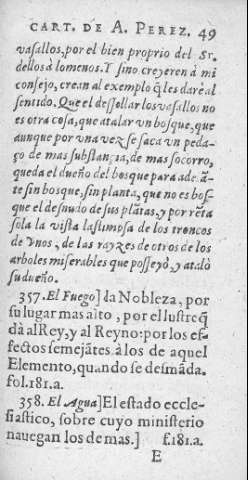 CART. DE A. PEREZ. 49
vasallos, por el bien proprio del Sr.
dellos à lomenos. Y sino creyeren à mi
consejo, crean al exemplo q̃ les daré al
sentido. Que el dessollar los vasallos no
es otra cosa, que atalar vn bosque, que
aunque por vna vez se saca vn peda-
ço de mas substançia, de mas socorro,
queda el dueño del bosque para ade ã-
te sin bosque, sin planta, que no es bos-
que el desnudo de sus plãtas, y por rẽta
sola la vista lastimosa de los troncos
de vnos, de las rayzes de otros de los
arboles miserables que posseyò, y atalò
su dueño.
357. El Fuego] la Nobleza, por
su lugar mas alto, por el lustre q̃
dà al Rey, y al Reyno: por los ef-
fectos semejãtes à los de aquel
Elemento, quando se desmãda.
fol. 181. a.
358. El Agua] El estado eccle-
siastico, sobre cuyo ministerio
nauegan los de mas.] f. 181. a.
E